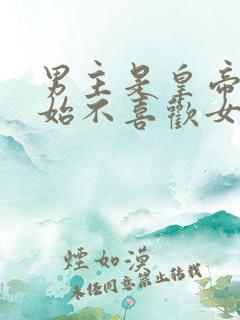 男主是皇帝
始不喜歡女
煙如漠
未经同意禁止转载